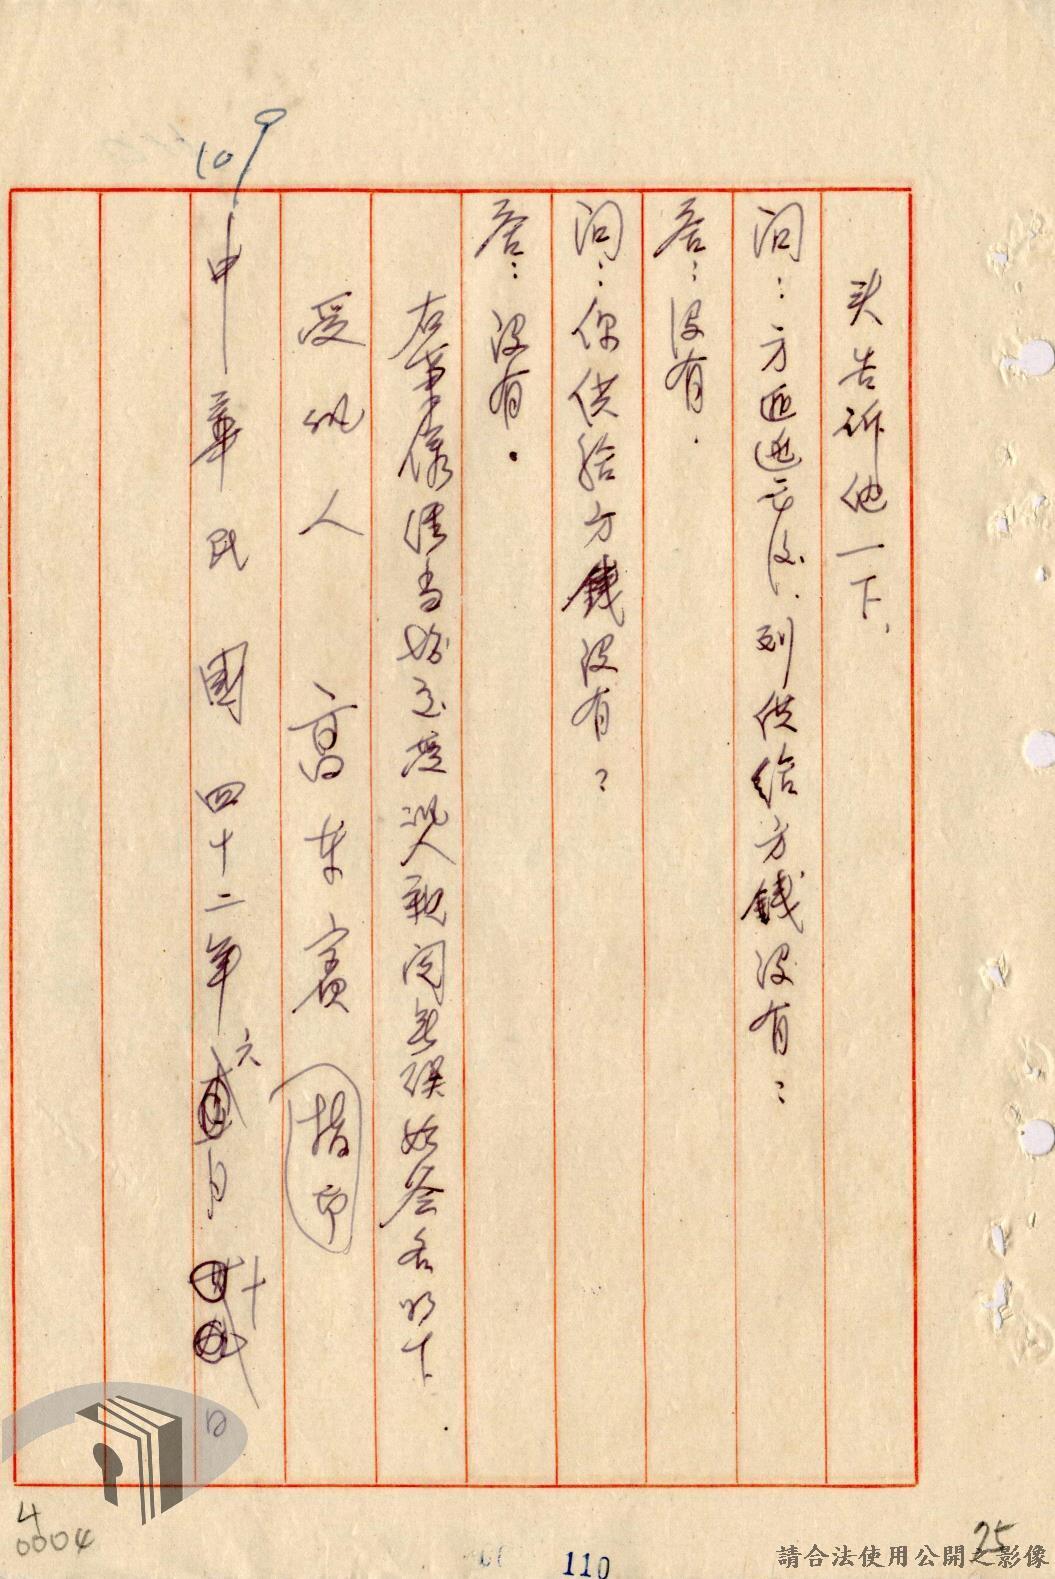 109
头告訴他一下、
問：方逃亡後、到供給方錢沒有：
答：沒有．
問：你供給方錢沒有？
答：沒有．
右筆錄經當給受訊人親閱無誤始簽名如下．
受訊人　高東賓　指印
中華民國四十二年六月十日
4
0004
110
25
請合法使用公開之影像